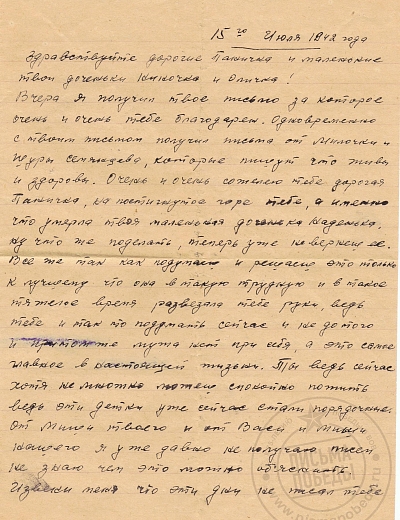 15го Июля 1942 года
Здравствуйте дорогие Паничка и маленькие
твои доченьки Ниночка и Оличка!
Вчера я получил твое письмо за которое
очень и очень тебе благодарен. Одновременно
с твоим письмом получил письма от Милочки и
Шуры которые пишут что живы
и здоровы. Очень и очень сожелею тебе дорогая
Паничка, на постигнутое горе тебе, а именно
что умерла твоя маленькая доченька Наденька,
ну что же поделать, теперь уже не вернеш ее.
Все же так как подумаеш и решаеш это только
к лучшему что она в такую трудную и в такое
тяжелое время развезала тебе руки, ведь
тебе и так то подумать сейчас и не до того
и мужа нет при тебя, а это самое
главное в настоящей жизни. Ты ведь сейчас
хотя не множко можеш спокойно пожить
ведь эти детки уже сейчас стали порядочние.
От Миши твоего и от Васи и Миши
нашего я уже давно не получаю писем
не знаю чем это можно объеснить.
Извени меня что эти дни не писал тебе
ПИСЬМА
ПОБЕДЫ